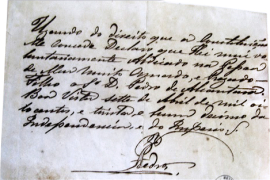 Usando do direito que a Constituição
Me concede Declaro que Hei mui vo
luntariamente Abdicado na Pessoa
de Meu muito Amado, e Prezado
Filho o Sr. D. Pedro de Alcantara
Boa Vista sette de Abril de mil oi
tocentos, e trinta, e hum, decimo da
Independencia e do Imperio.
Pedro